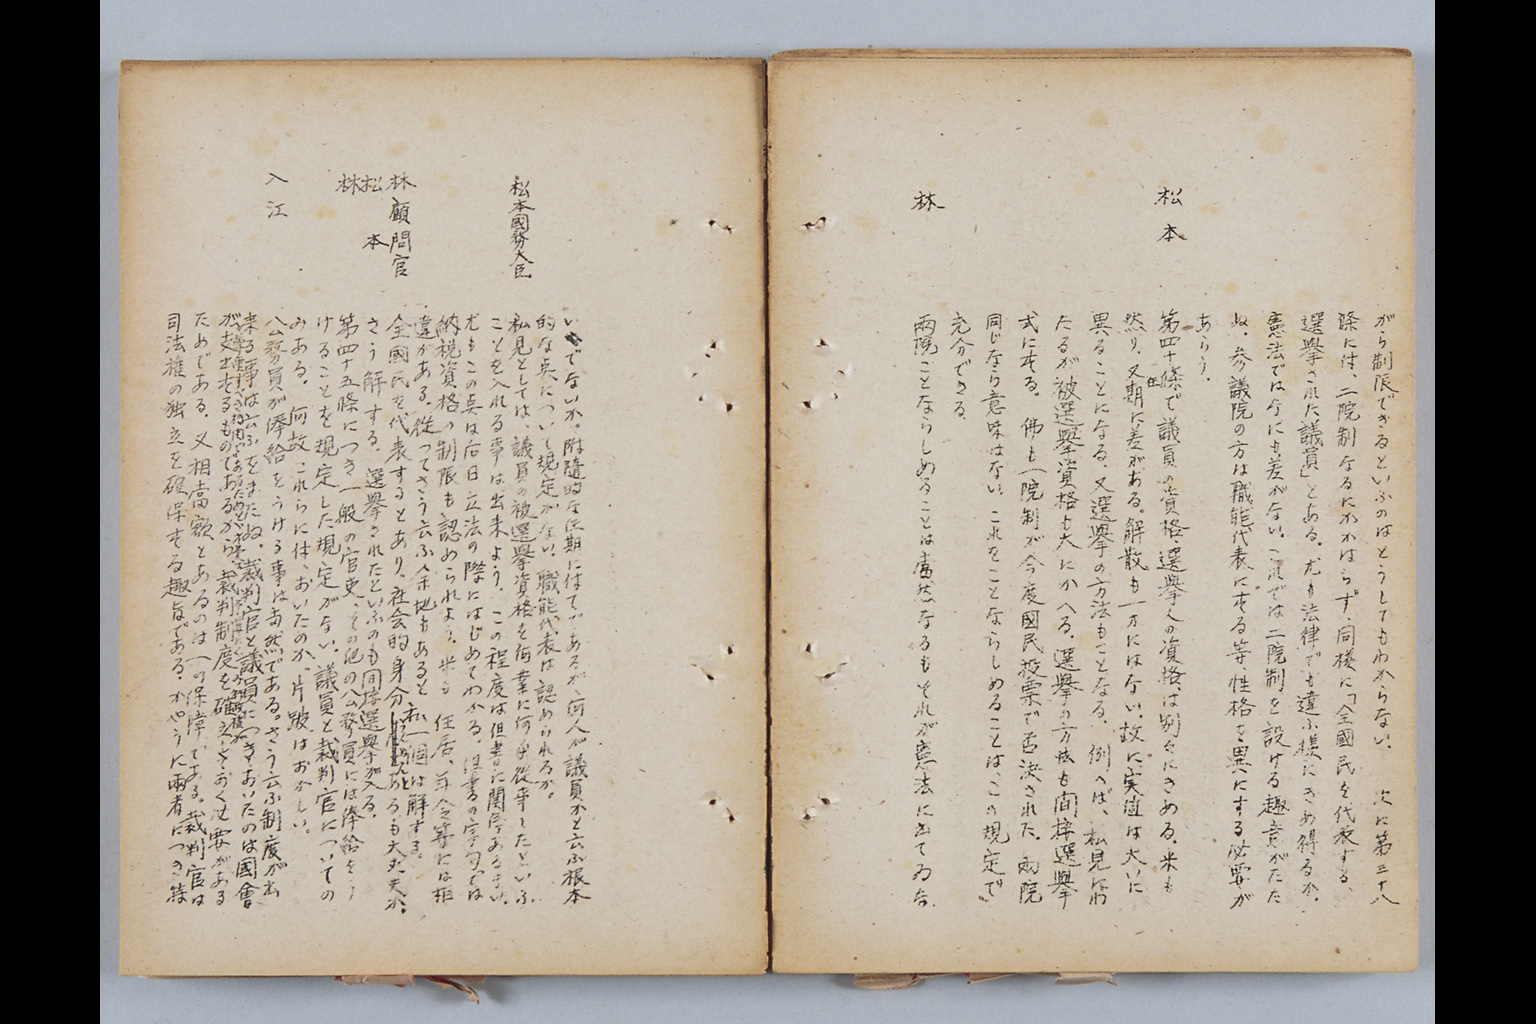 がら制限できるといふのはどうしてもわからない。 次に第三十八
條には、二院制なるにかかはらず、同様に「全國民を代表する、
選擧された議員」とある。尤も法律でも違ふ様にきめ得るか、
憲法では今にも差がない。これでは二院制を設ける趣意がたた
ぬ。参議院の方は職能代表にする等、性格を異にする必要が
あらう。
松本
第四十條で議員の資格、選擧人の資格は別々にきめる。米も
然り、又任期に差がある。解散も一方にはない。故に実道は大いに
異ることになる。又選擧の方法もことなる。例へば、私見はわ
たるが被選擧資格も大にかへる。選擧の方法も間接選擧
式にする。佛も一院制が今度國民投票で否決された。両院
同じなら意味はない、これをことならしめることは、この規定で
充分できる。
林
両院ことならしめることは當然なるもそれが憲法に出てゐな
いでないか。附隨的な任期には出てゐるが何人が議員かと云ふ根本
的な点について規定がない。職能代表は認められるか。
松本國務大臣
私見としては、議員の被選擧資格を何業に何年從事したといふ
ことを入れる事は出来よう。この程度は但書に関係あるまい。
尤もこの点は后日立法の際にはじめてわかる。但書の字句では
納税資格の制限も認められよう。米も 住居、年令等には相
違がある。從つてさう云ふ余地もあると私一個は解する。
林顧問官
全國民を代表するとあり、社会的身分 あるも大丈夫か。
松本
さう解する。選擧されたといふのも間接選擧が入る。
林
第四十五條につき一般の官吏、その他の公務員には俸給をう
けることを規定した規定がない。議員と裁判官についての
みある。何故これらには、おいたのか、片跛はおかしい。
入江
公務員が俸給をうける事は当然である。さう云ふ制度が出
来る事は云ふをまたぬ。裁判官と議員につきおいたのは國會
が 裁判制度を確立しておく必要がある
ためである。又相當額とあるのは一の保障である。裁判官は
司法権の独立を確保する趣旨である。かやうに両者につき特